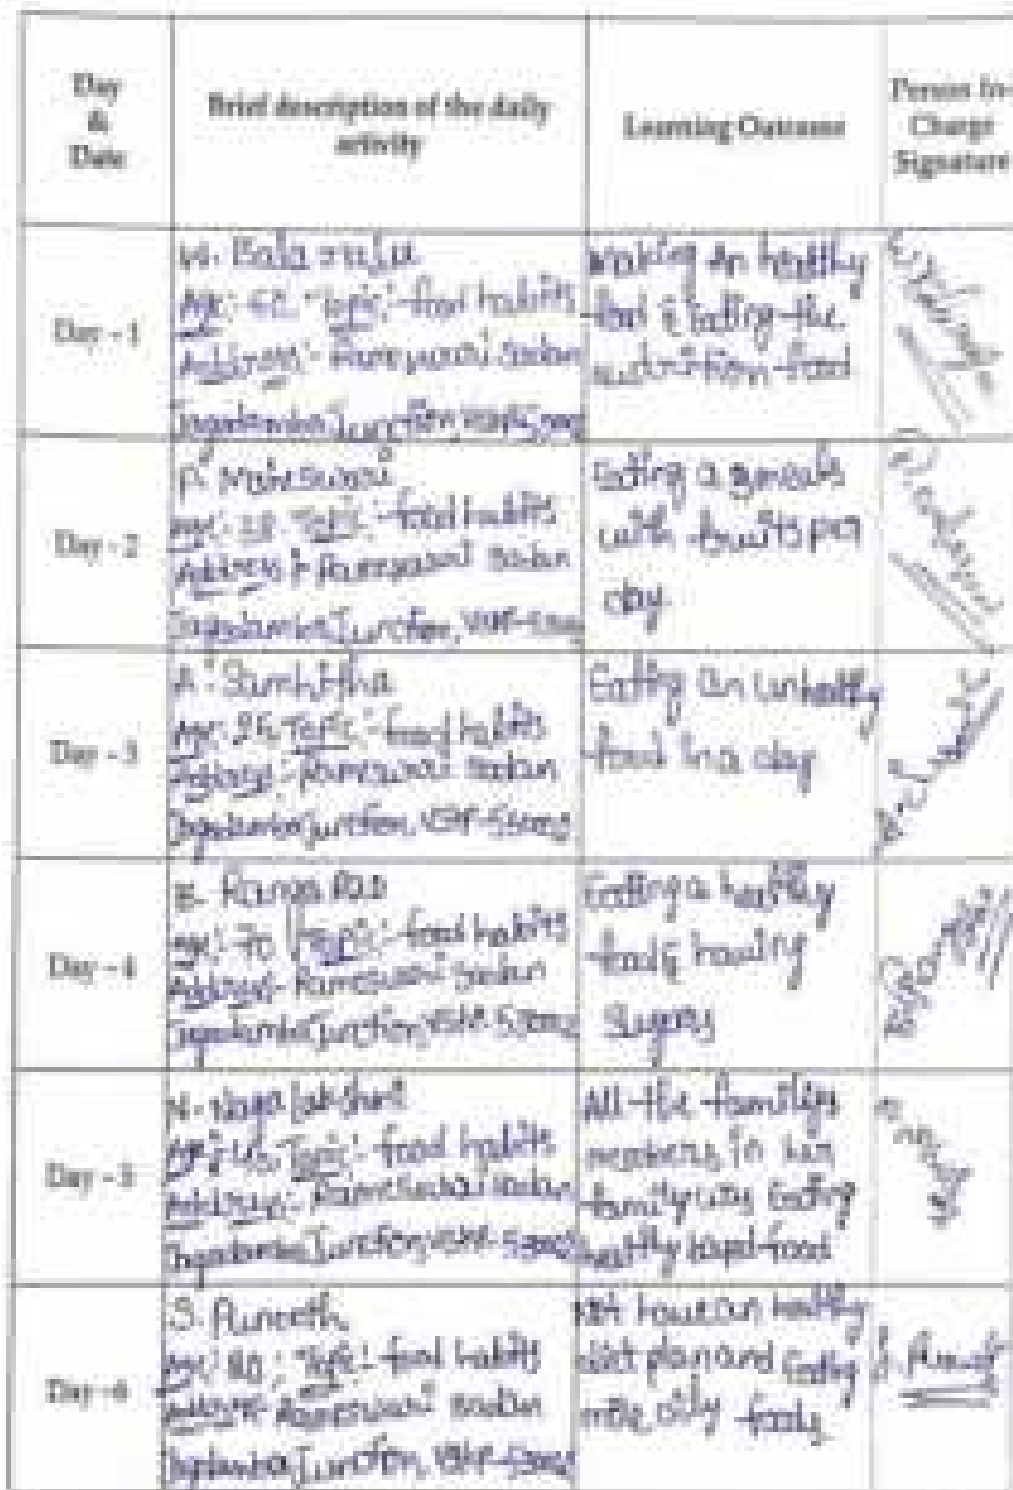 Day
&
Date
Brief description of the daily
activity
Learning Outcome
Person In-
Charge
Signature
Day - 1
Age: Topic:- food habits
Address:- Rameswari Sadan
Jagadamba Junction,
Making an healthy
food & Eating the
nutrition food
Day - 2
P. Maheswari
Age: Topic:- food habits
Address:- Rameswari Sadan
Jagadamba Junction,
Eating a
with fruits per
day
Day - 3
A. Samhitha
Age: Topic:- food habits
Address:- Rameswari Sadan
Jagadamba Junction,
Eating an unhealthy
food in a day
Day - 4
B. Ranga Rao
Age:- 70 Topic:- food habits
Address:- Rameswari Sadan
Jagadamba Junction,
Eating a healthy
food & having
Sugars
Day - 5
N. Naga lakshmi
Topic:- food habits
Address:- Rameswari Sadan
Jagadamba Junction,
All the
members in her
family was Eating
healthy food
Day - 6
S. Puneeth
Topic:- food habits
Rameswari Sadan
Jagadamba Junction,
Not have an healthy
diet plan and Eating
more oily foods
S. Puneeth